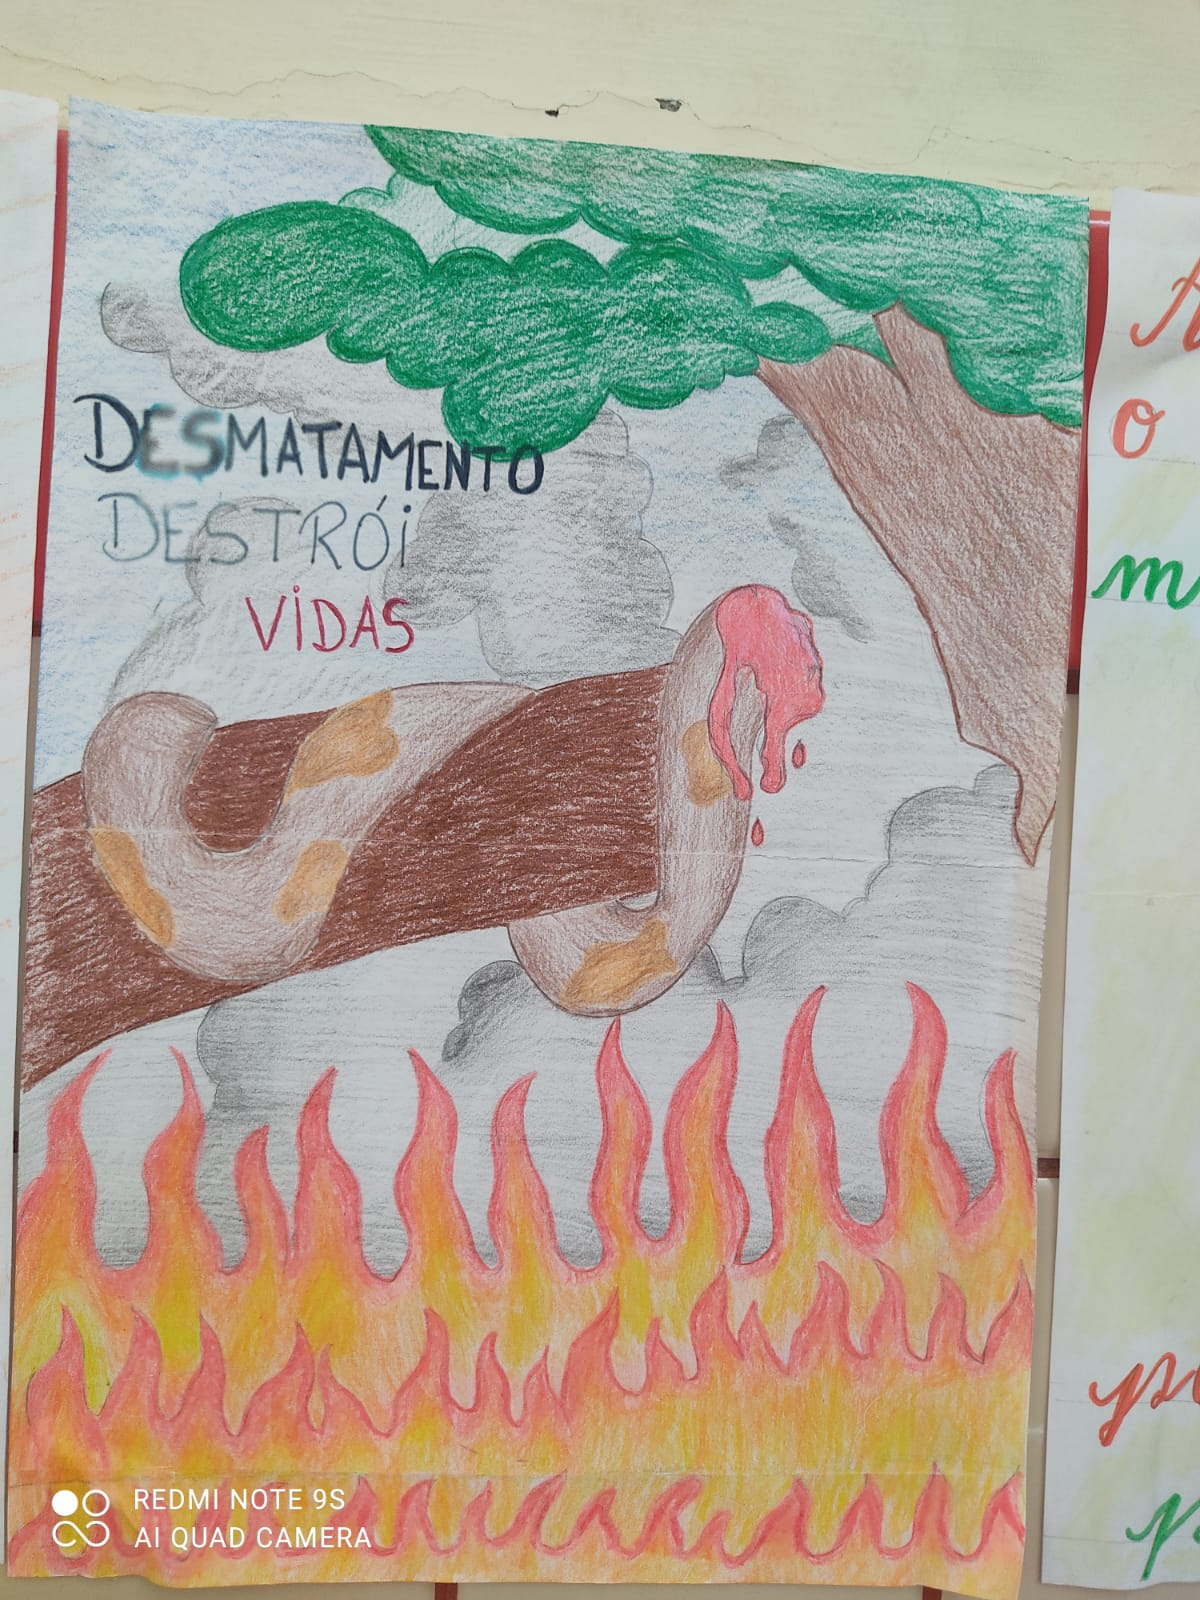 DESMATAMENTO
DESTRÓi
ViDAS
O
m
REDMI NOTE 9S
AI QUAD CAMERA